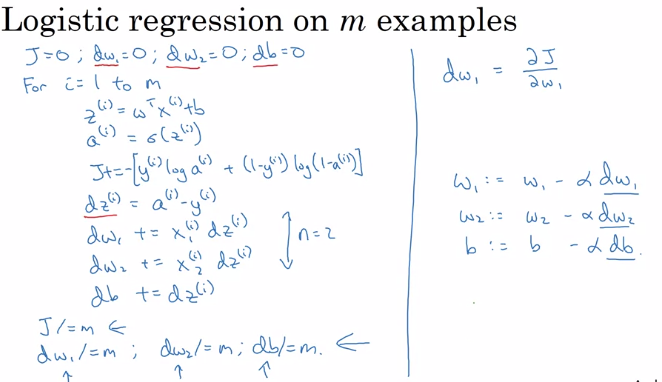 Logistic regression on m examples
J=0 ; dw₁=0 ; dw₂=0 ; db=0
For i=1 to m
z⁽ⁱ⁾ = wᵀx⁽ⁱ⁾+b
a⁽ⁱ⁾ = σ(z⁽ⁱ⁾)
J+=-[y⁽ⁱ⁾ log a⁽ⁱ⁾ + (1-y⁽ⁱ⁾) log(1-a⁽ⁱ⁾)]
dz⁽ⁱ⁾ = a⁽ⁱ⁾-y⁽ⁱ⁾
dw₁ += x₁⁽ⁱ⁾ dz⁽ⁱ⁾
dw₂ += x₂⁽ⁱ⁾ dz⁽ⁱ⁾
n=2
db += dz⁽ⁱ⁾
J/=m ←
dw₁/=m ; dw₂/=m ; db/=m. ←
dw₁ = ∂J/∂w₁
w₁ := w₁ - α dw₁
w₂ := w₂ - α dw₂
b := b - α db.